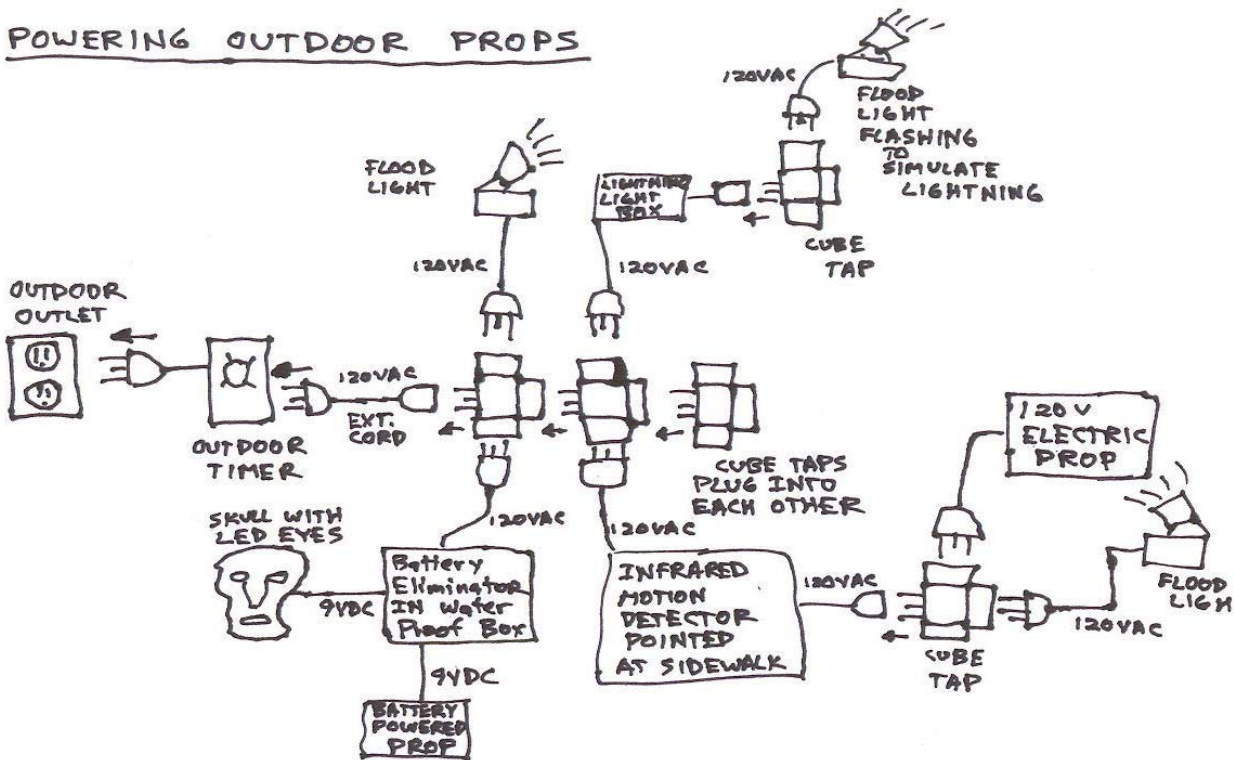 POWERING OUTDOOR PROPS
120VAC
FLOOD
LIGHT
FLASHING
TO
SIMULATE
LIGHTNING
FLOOD
LIGHT
LIGHTNING
LIGHT
BOX
CUBE
TAP
120VAC
120VAC
OUTDOOR
OUTLET
120VAC
EXT.
CORD
OUTDOOR
TIMER
CUBE TAPS
PLUG INTO
EACH OTHER
120V
ELECTRIC
PROP
SKULL WITH
LED EYES
120VAC
120VAC
Battery
Eliminator
IN Water
Proof Box
9VDC
INFRARED
MOTION
DETECTOR
POINTED
AT SIDEWALK
120VAC
FLOOD
LIGH
120VAC
CUBE
TAP
9VDC
BATTERY
POWERED
PROP